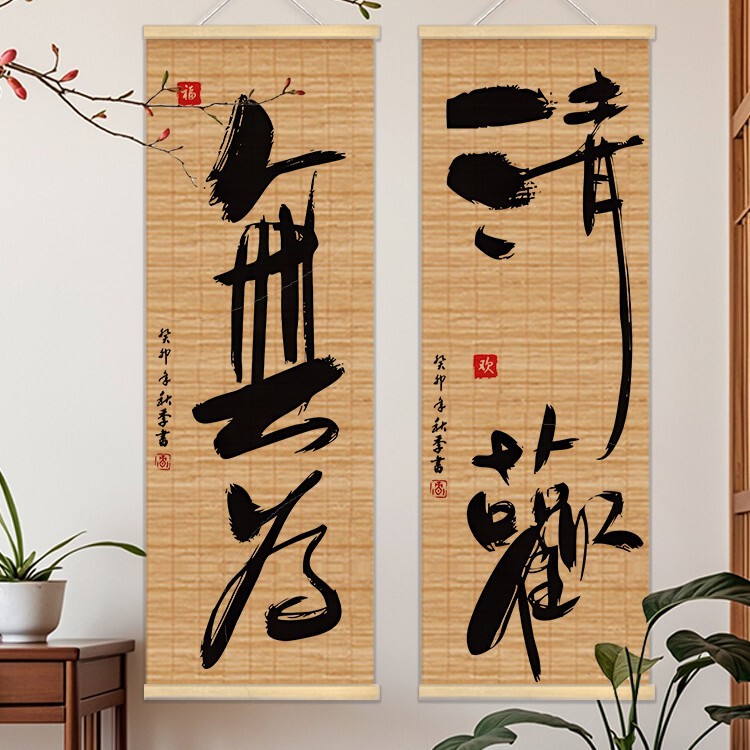 清歡
欢
癸卯年秋季書
福
無為
癸卯年秋季書